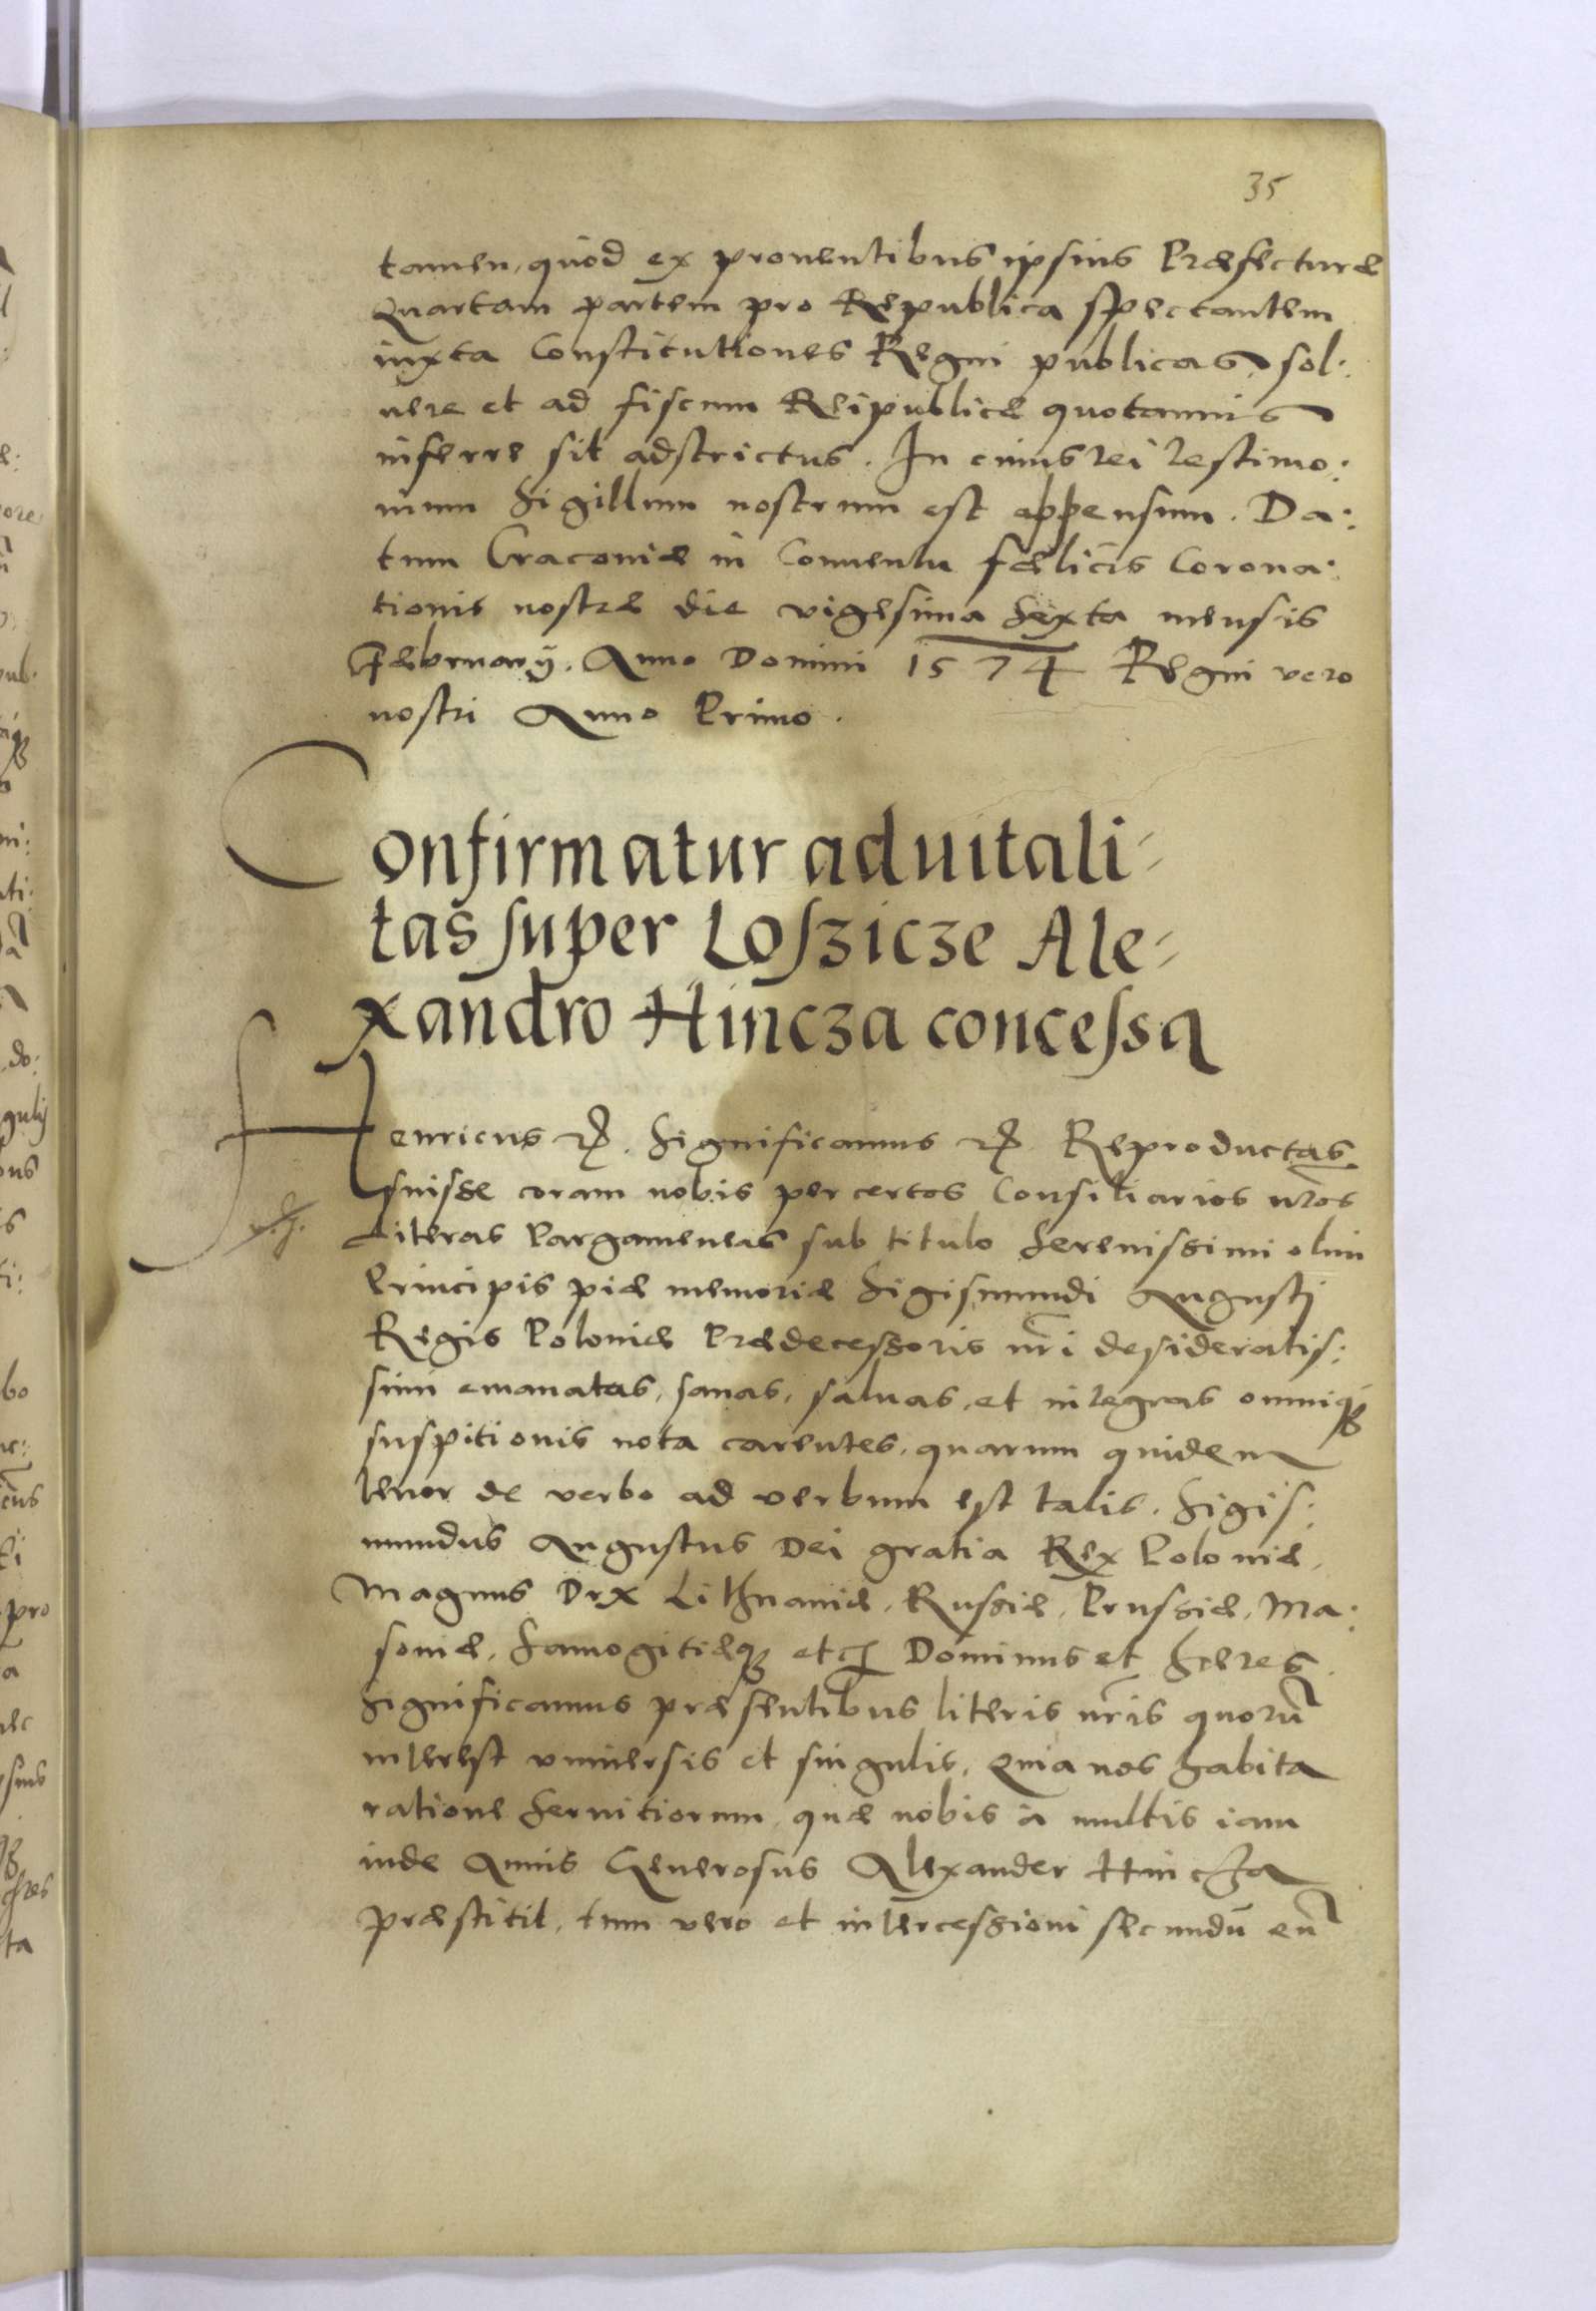 35
tamen, quod ex prouentibus ipsius Præfecturæ
Quartam partem pro Republica spectantem
iuxta Constitutiones Regni publicas, sol:
uere et ad fiscum Reipublicæ quotannis
inferre sit adstrictus. In cuius rei testimo:
nium Sigillum nostrum est appensum. Da:
tum Cracouiæ in Conuentu fælicis Corona:
tionis nostræ die vigesima sexta mensis
Februarij. Anno Domini 1574 Regni vero
nostri Anno Primo.
Confirmatur aduitali-
tas super Loszicze Ale-
xandro Hincza concessa
Henricus etc. Significamus etc. Reproductas
fuisse coram nobis per certos Consiliarios nr̃os
Literas Pargameneas sub titulo Serenissimi olim
Principis piæ memoriæ Sigismundi Augusti
Regis Poloniæ Prædecessoris nr̃i desideratis:
simi emanatas, sanas, saluas, et integras omniq3
suspitionis nota carentes, quarum quidem
tenor de verbo ad verbum est talis. Sigis:
mundus Augustus Dei gratia Rex Poloniæ,
Magnus Dux Lithuaniæ, Russiæ, Prussiæ, Ma:
soviæ, Samogitiæq3 etc. Dominus et Hæres.
Significamus præsentibus literis nr̃is quorũ
interest vniuersis et singulis, Quia nos habita
ratione Seruitiorum, quæ nobis à multis iam
inde Annis Generosus Alexander Hincza
præstitit, tum vero et intercessioni secundũ eũ